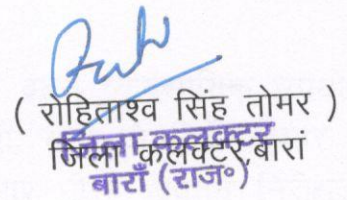 ( रोहिताश्व सिंह तोमर )
जिला कलक्टर
जिला कलेक्टर,बारां
बाराँ (राज०)